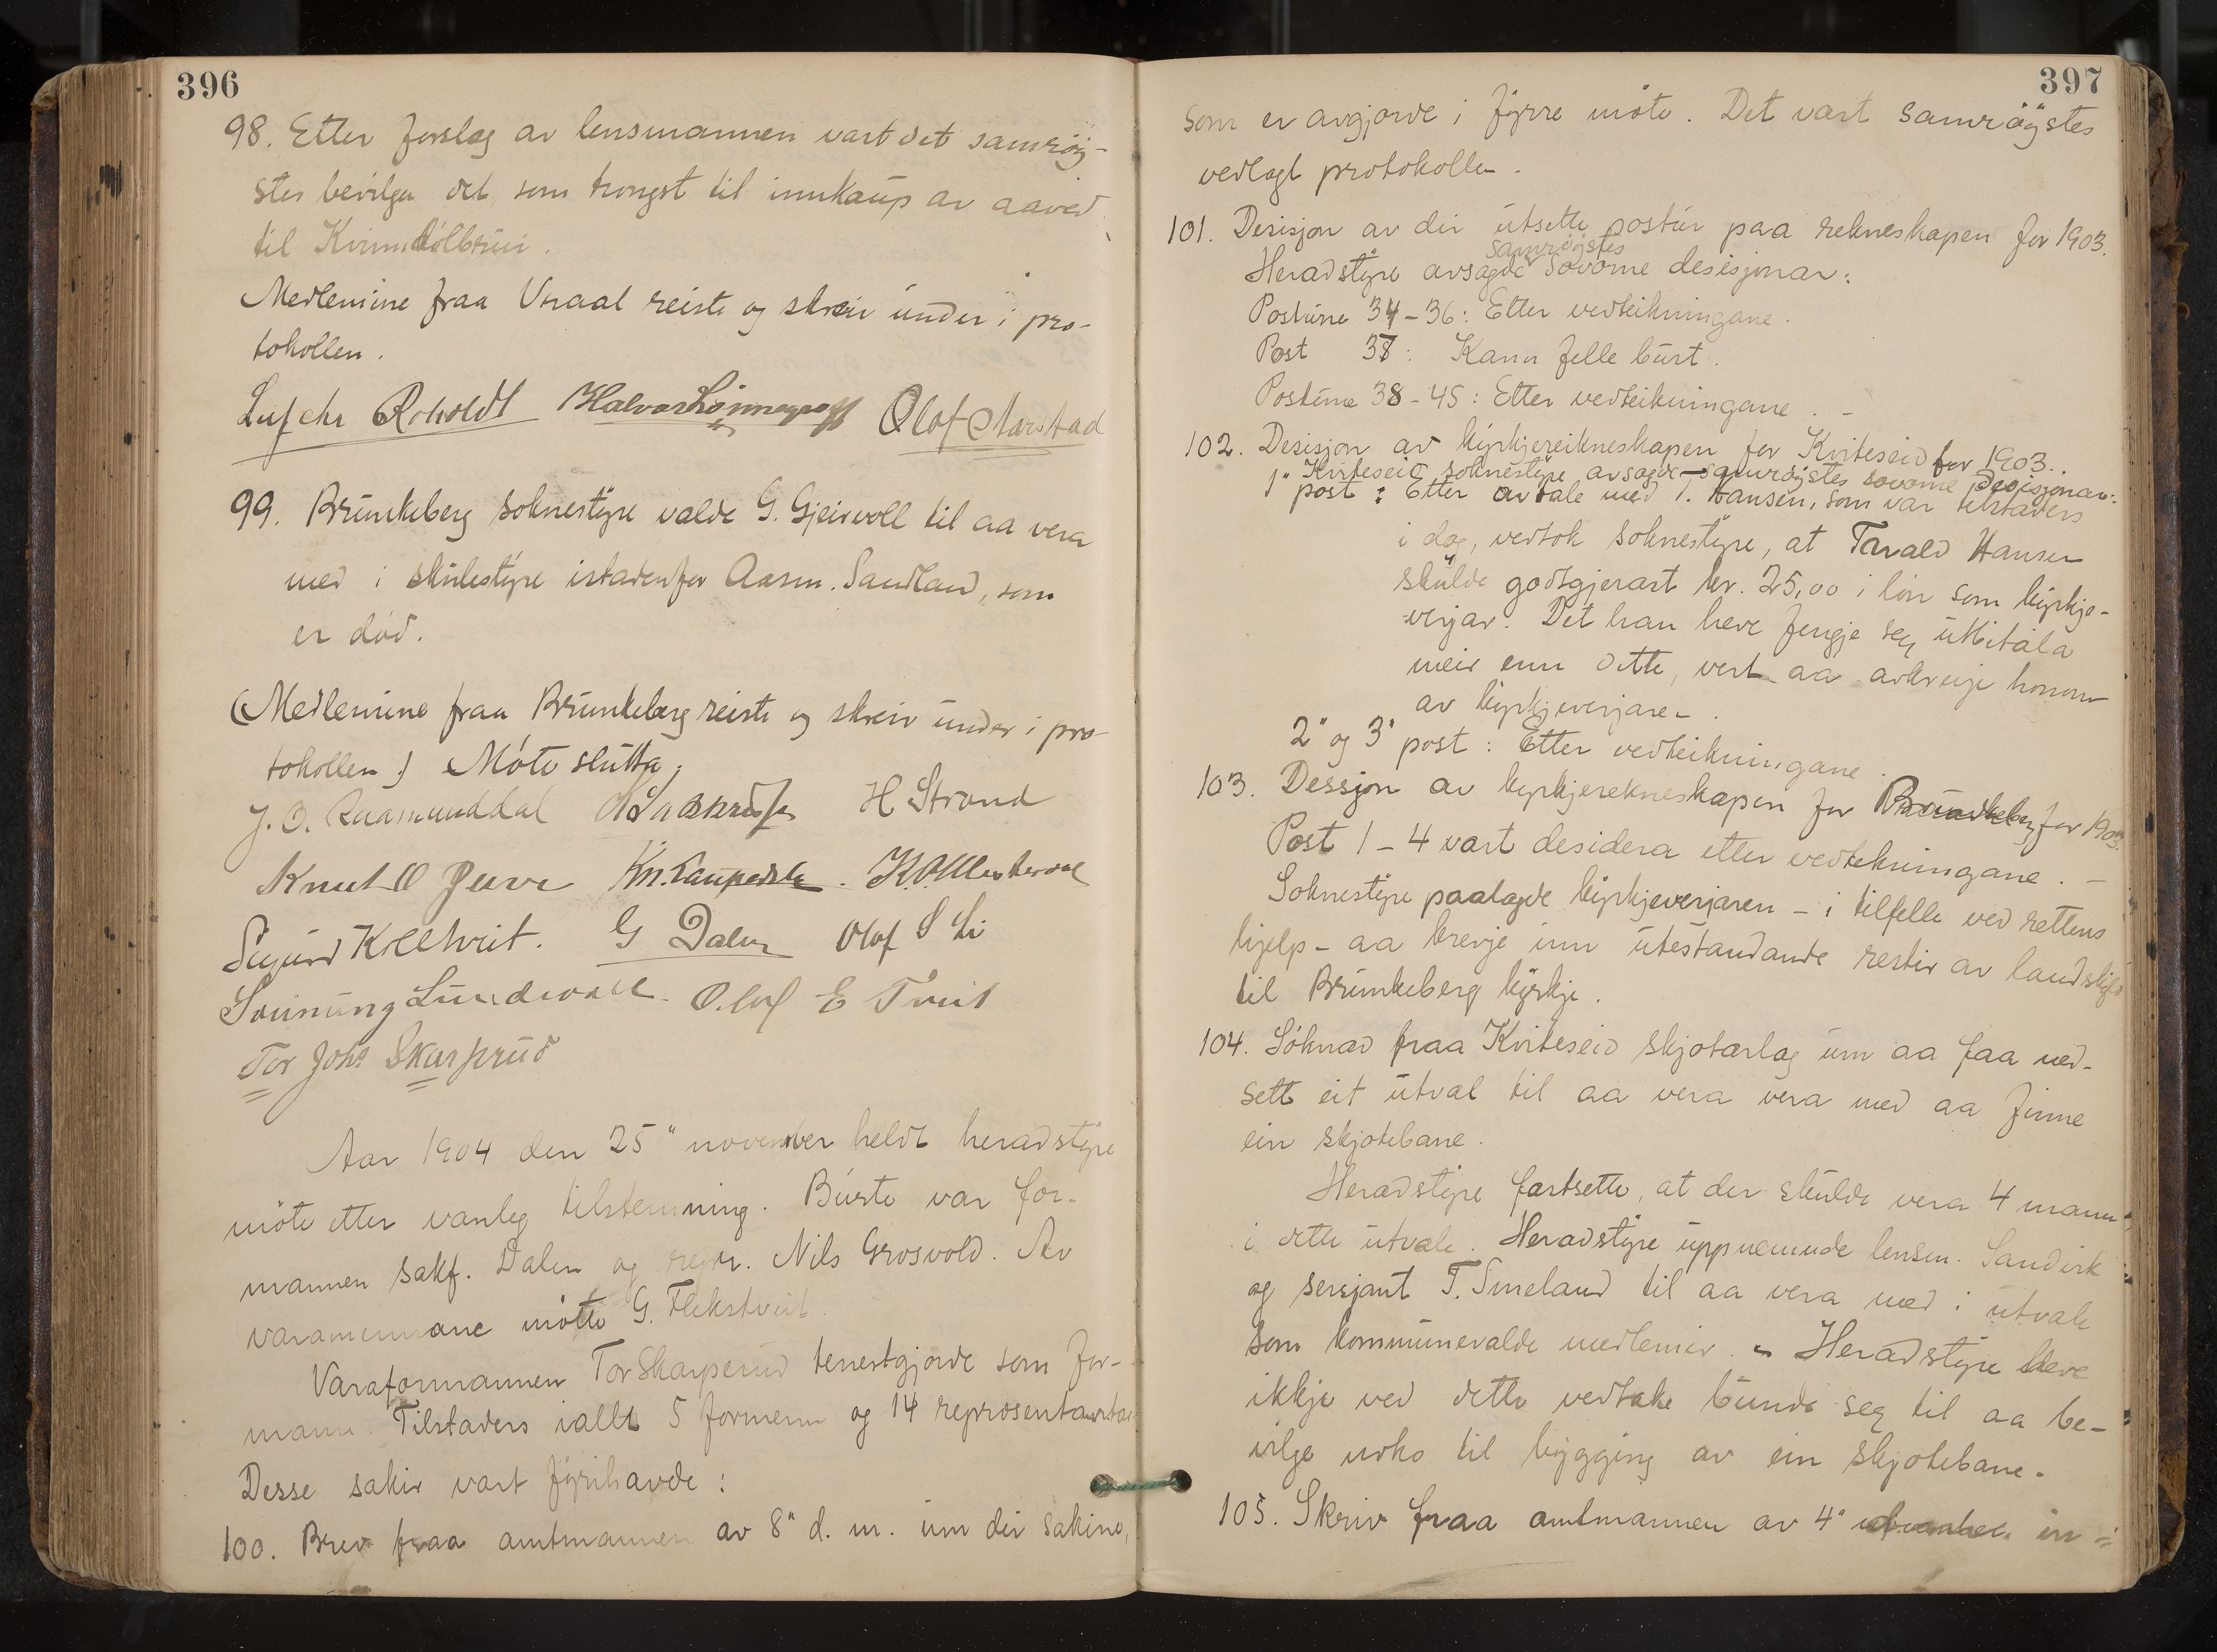 396
98. Etter forslag av lensmannen vart det samrøy-
stes bevilga det som trongst til innkaup av aaved
til Kvinndølbrui.
Medlemine fraa Vraal reiste og skreiv under i pro-
tokollen.
Roholdt Halvor Olof Aarstad
99. Brunkeberg soknestyre valde G. Gjeirvoll til aa vera
med i skulestyre istadenfor Aasm. Sandland, som
er død.
(Medlemine fraa Brunkeberg reiste og skreiv under i pro-
tokollen.) Møte slutta.
J. O. Raamunddal H Strand
Knut O Juve
Sigurd Kolltveit. G Dalen Olof S Li
Sveinung Lundevall. Olof E Tveit
Tor Johs Skarprud
Aar 1904 den 25" november heldt heradstyre
møte etter vanleg tilstemning. Burte var for-
mannen sakf. Dalen og repr. Nils Grosvold. Av
varamennane møtte G. Flekstveit.
Varaformannen Tor Skarperud tenestgjorde som for-
mann. Tilstaders iallt 5 formenn og 14 representantar
Desse sakir vart fyrihavde:
100. Brev fraa amtmannen av 8" d. m. um dei sakine,
397
som er avgjorde i fyrre møte. Det vart samrøystes
vedlagt protokollen.
101. Desisjon av dei utsette postur paa rekneskapen for 1903.
samrøystes
Heradstyre avsagde sovorne desisjonar:
Postune 34-36: Etter vedteikningane.
Post 37: Kann felle burt.
Postune 38-45: Etter vedteikningane. -
102. Desisjon av kyrkjereikneskapen for Kviteseid for 1903.
Kviteseid soknestyre avsagde samrøystes sovorne desisjonar:
1" post: Etter avtale med T. Hansen, som var tilstaders
i dag, vedtok soknestyre, at Tarald Hansen
skulde godtgjerast kr. 25,00 i løn som kyrkje-
verjar. Det han heve fengje seg utbitala
meir enn dette, vert aa avkrevje honom
av kyrkjeverjaren.
2" og 3" post: Etter vedteikningane.
103. Dessjon av kyrkjerekneskapen for Brunkeberg for 1903.
Post 1-4 vart desidera etter vedtekningane. -
Soknestyre paalagde kyrkjeverjaren - i tilfelle ved rettens
hjelp - aa krevje inn utestandande restir av landskyld
til Brunkeberg kyrkje.
104. Søknad fraa Kviteseid skjotarlag um aa faa ned-
sett eit utval til aa vera vera med aa finne
ein skjotebane.
Heradstyre fastsette, at der skulde vera 4 mann
i dette utvale. Heradstyre uppnemnde lensm. Sandvik
og sersjant T. Smeland til aa vera med i utvale
som kommunevalde medlemir. - Heradstyre heve
ikkje ved dette vedtake bunde seg til aa be-
vilge noko til bygging av ein skjotebane.
105. Skriv fraa amtmannen av 4"